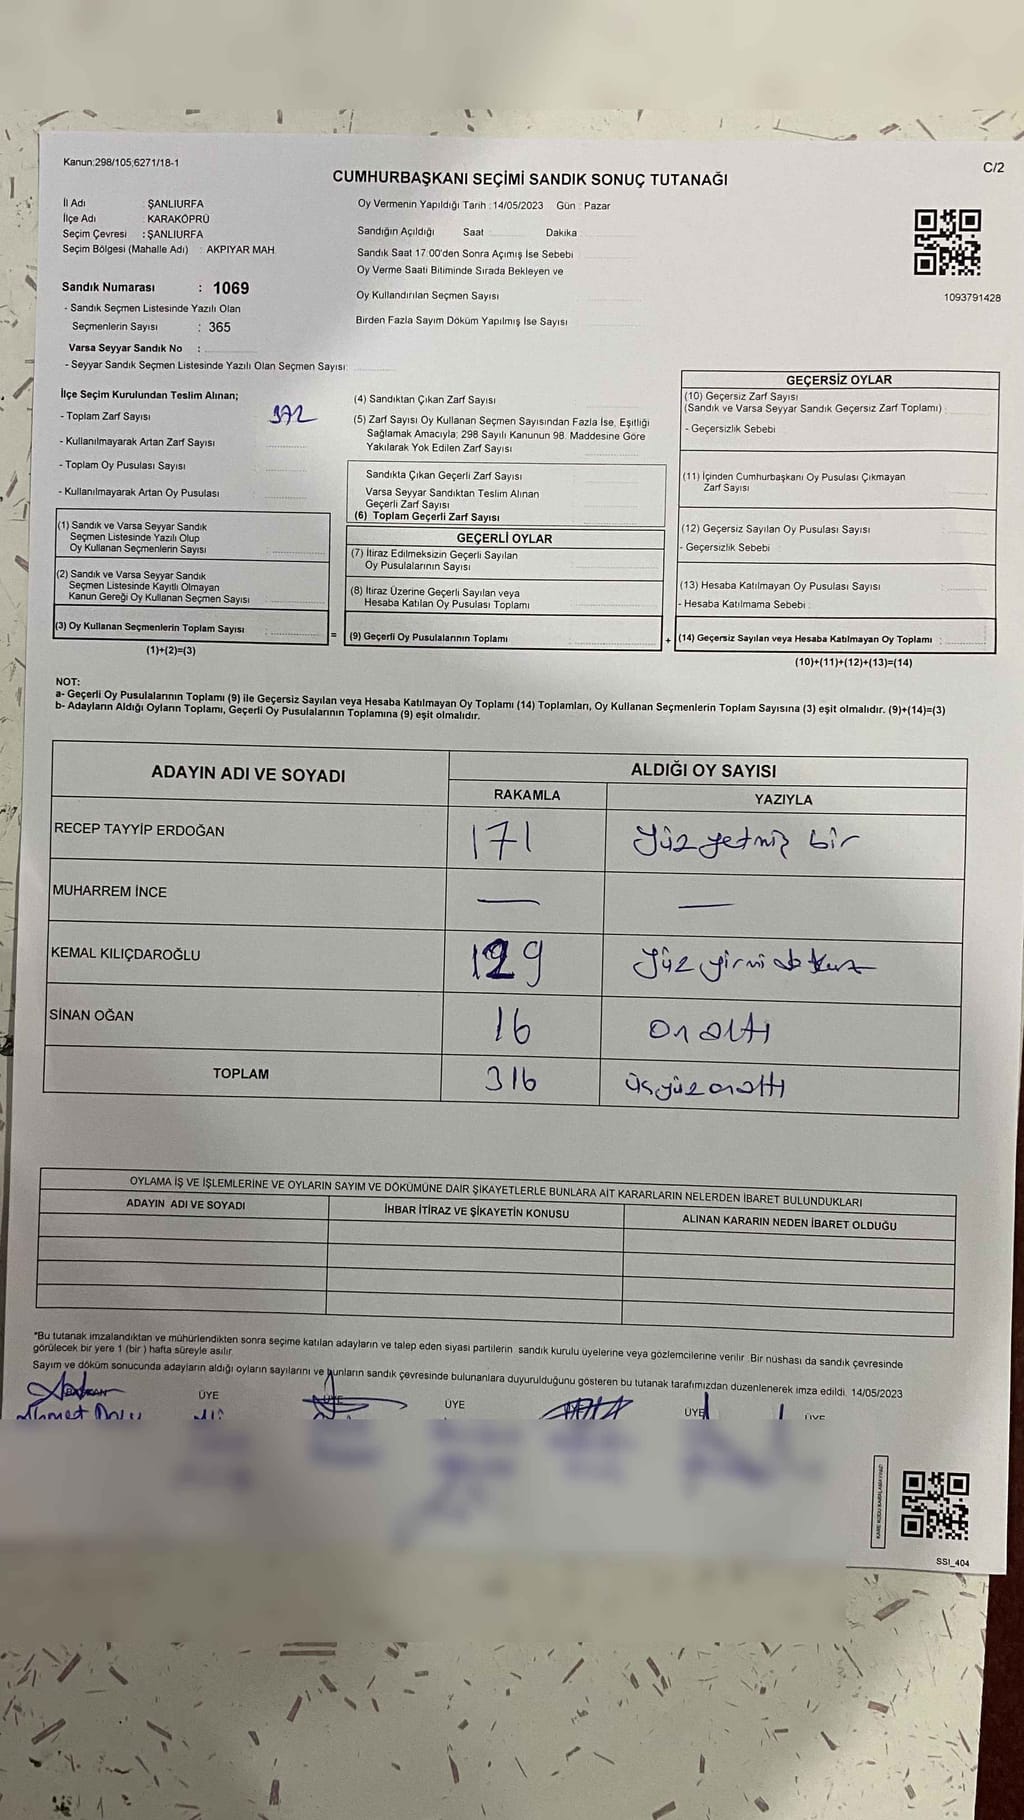 Kanun:298/105;6271/18-1
C/2
CUMHURBAŞKANI SEÇİMİ SANDIK SONUÇ TUTANAĞI
İl Adı : ŞANLIURFA
İlçe Adı : KARAKÖPRÜ
Seçim Çevresi : ŞANLIURFA
Seçim Bölgesi (Mahalle Adı) : AKPIYAR MAH.
Sandık Numarası : 1069
- Sandık Seçmen Listesinde Yazılı Olan
Seçmenlerin Sayısı : 365
Varsa Seyyar Sandık No :
- Seyyar Sandık Seçmen Listesinde Yazılı Olan Seçmen Sayısı:
Oy Vermenin Yapıldığı Tarih : 14/05/2023 Gün : Pazar
Sandığın Açıldığı Saat Dakika
Sandık Saat 17:00'den Sonra Açımış İse Sebebi
Oy Verme Saati Bitiminde Sırada Bekleyen ve
Oy Kullandırılan Seçmen Sayısı
Birden Fazla Sayım Döküm Yapılmış İse Sayısı
1093791428
İlçe Seçim Kurulundan Teslim Alınan;
- Toplam Zarf Sayısı 372
- Kullanılmayarak Artan Zarf Sayısı
- Toplam Oy Pusulası Sayısı
- Kullanılmayarak Artan Oy Pusulası
(1) Sandık ve Varsa Seyyar Sandık
Seçmen Listesinde Yazılı Olup
Oy Kullanan Seçmenlerin Sayısı
(2) Sandık ve Varsa Seyyar Sandık
Seçmen Listesinde Kayıtlı Olmayan
Kanun Gereği Oy Kullanan Seçmen Sayısı
(3) Oy Kullanan Seçmenlerin Toplam Sayısı
(1)+(2)=(3)
(4) Sandıktan Çıkan Zarf Sayısı
(5) Zarf Sayısı Oy Kullanan Seçmen Sayısından Fazla İse, Eşitliği
Sağlamak Amacıyla; 298 Sayılı Kanunun 98. Maddesine Göre
Yakılarak Yok Edilen Zarf Sayısı
Sandıkta Çıkan Geçerli Zarf Sayısı
Varsa Seyyar Sandıktan Teslim Alınan
Geçerli Zarf Sayısı
(6) Toplam Geçerli Zarf Sayısı
GEÇERLİ OYLAR
(7) İtiraz Edilmeksizin Geçerli Sayılan
Oy Pusulalarının Sayısı
(8) İtiraz Üzerine Geçerli Sayılan veya
Hesaba Katılan Oy Pusulası Toplamı
= (9) Geçerli Oy Pusulalarının Toplamı
GEÇERSİZ OYLAR
(10) Geçersiz Zarf Sayısı
(Sandık ve Varsa Seyyar Sandık Geçersiz Zarf Toplamı)
- Geçersizlik Sebebi
(11) İçinden Cumhurbaşkanı Oy Pusulası Çıkmayan
Zarf Sayısı
(12) Geçersiz Sayılan Oy Pusulası Sayısı
- Geçersizlik Sebebi
(13) Hesaba Katılmayan Oy Pusulası Sayısı
- Hesaba Katılmama Sebebi
+ (14) Geçersiz Sayılan veya Hesaba Katılmayan Oy Toplamı :
(10)+(11)+(12)+(13)=(14)
NOT:
a- Geçerli Oy Pusulalarının Toplamı (9) ile Geçersiz Sayılan veya Hesaba Katılmayan Oy Toplamı (14) Toplamları, Oy Kullanan Seçmenlerin Toplam Sayısına (3) eşit olmalıdır. (9)+(14)=(3)
b- Adayların Aldığı Oyların Toplamı, Geçerli Oy Pusulalarının Toplamına (9) eşit olmalıdır.
ADAYIN ADI VE SOYADI ALDIĞI OY SAYISI
RAKAMLA YAZIYLA
RECEP TAYYİP ERDOĞAN 171 Yüz yetmiş bir
MUHARREM İNCE — —
KEMAL KILIÇDAROĞLU 129 Yüz yirmi dokuz
SİNAN OĞAN 16 On altı
TOPLAM 316 üçyüz onaltı
OYLAMA İŞ VE İŞLEMLERİNE VE OYLARIN SAYIM VE DÖKÜMÜNE DAİR ŞİKAYETLERLE BUNLARA AİT KARARLARIN NELERDEN İBARET BULUNDUKLARI
ADAYIN ADI VE SOYADI İHBAR İTİRAZ VE ŞİKAYETİN KONUSU ALINAN KARARIN NEDEN İBARET OLDUĞU
*Bu tutanak imzalandıktan ve mühürlendikten sonra seçime katılan adayların ve talep eden siyasi partilerin sandık kurulu üyelerine veya gözlemcilerine verilir. Bir nüshası da sandık çevresinde
görülecek bir yere 1 (bir) hafta süreyle asılır.
Sayım ve döküm sonucunda adayların aldığı oyların sayılarını ve bunların sandık çevresinde bulunanlara duyurulduğunu gösteren bu tutanak tarafımızdan düzenlenerek imza edildi. 14/05/2023
BAŞKAN ÜYE ÜYE ÜYE ÜYE ÜYE
Ahmet
SSI_404